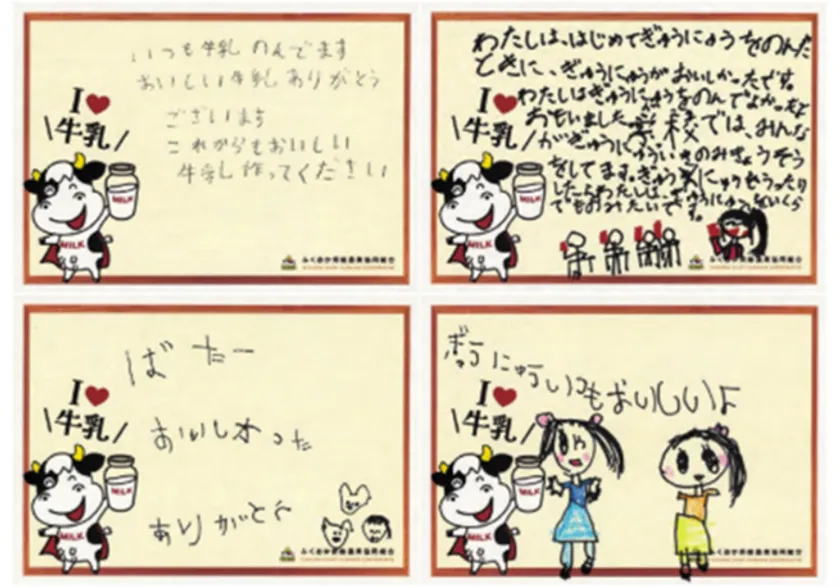 いつも牛乳のんでます
おいしい牛乳ありがとう
ございます
これからもおいしい
牛乳し作ってください
I
牛乳
MILK
MILK
わたしは、はじめてぎゅうにゅうをのんだ
ときに、ぎゅうにゅうがおいしかったです。
わたしはぎゅうにゅうをのんでよかったと
おもいました。学校では、みんな
がぎゅうにゅう のみきょうそう
をしてます。ぎゅうにゅうもうったり
したらわたしは、ぎゅうにゅう いくら
でものみたいです。
I
牛乳
MILK
MILK
ばたー
おいしかった
ありがとう
I
牛乳
MILK
MILK
ぎゅうにゅういつもおいしいよ
I
牛乳
MILK
MILK